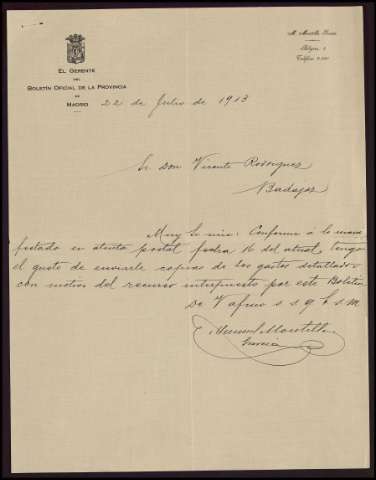 M. Montilla García
Teléfono
EL GERENTE
DEL
BOLETÍN OFICIAL DE LA PROVINCIA
DE
MADRID
22 de Julio de 1913
Sr. Don Vicente Rodríguez
Badajoz
Muy Sr. mío: Conforme á lo mani
festado en atenta postal fecha 16 del actual, tengo
el gusto de enviarle copias de los gastos detallados
con motivo del recurso interpuesto por este Boletín
De V afmo s. s. q. b. s. m.
Manuel Montilla
García